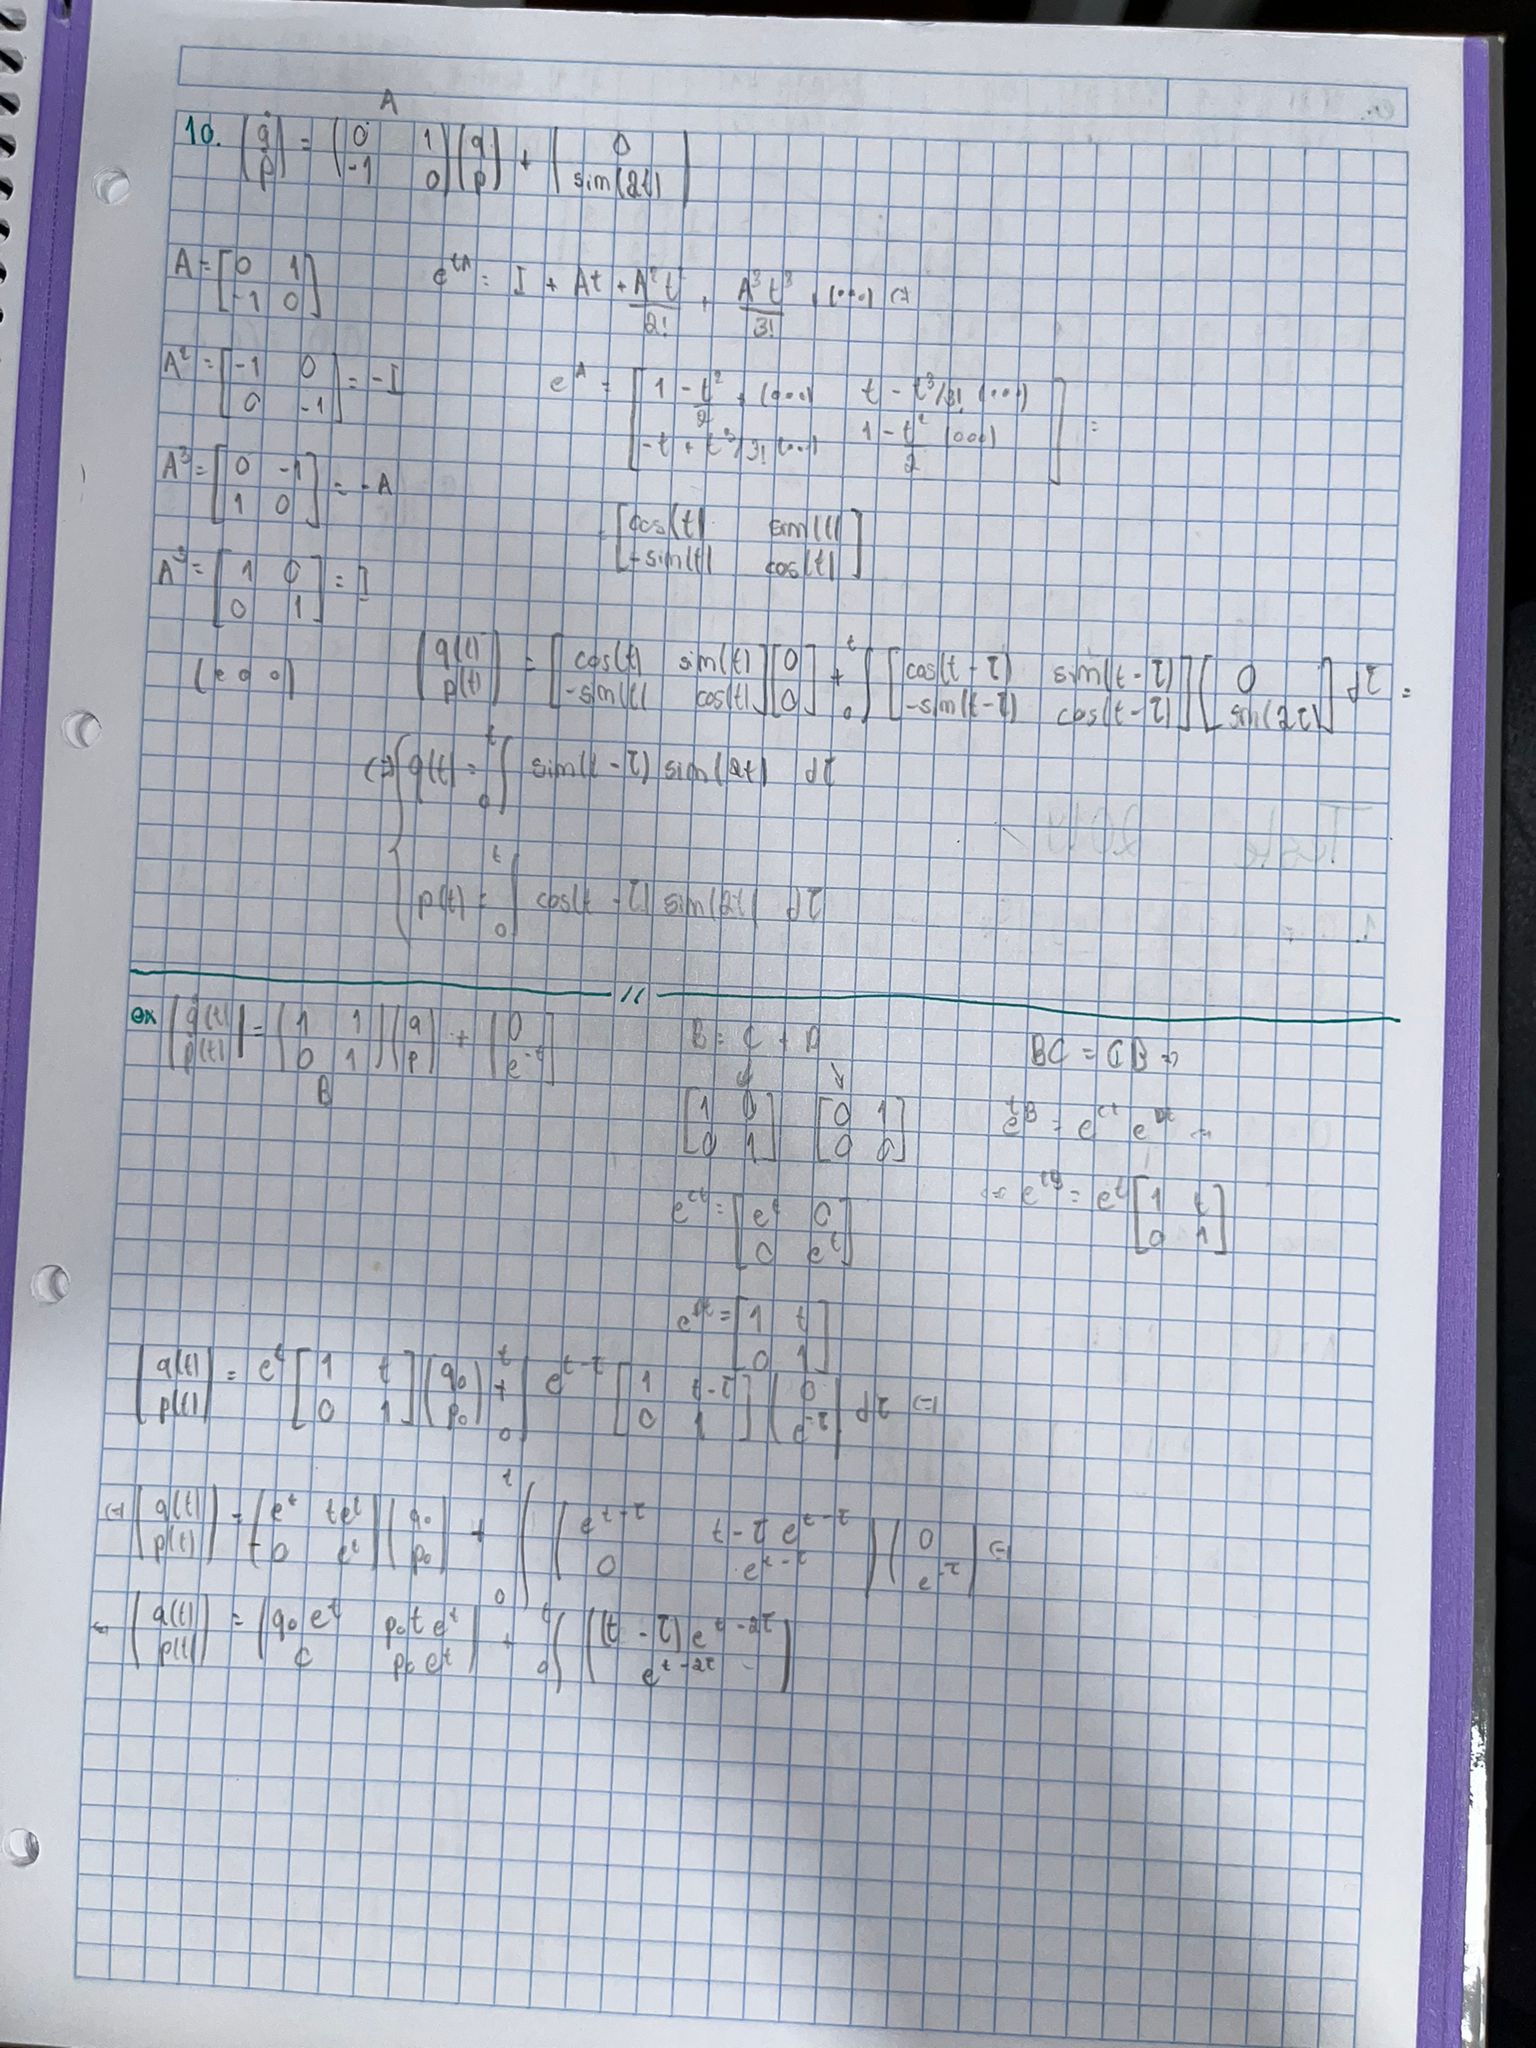 A
10. (q̇ ṗ) = (0 1 -1 0)(q p) + (0 sin(2t))
A = [0 1 -1 0] e^{tA} = I + At + A²t²/2! + A³t³/3! + (...) (=)
A² = [-1 0 0 -1] = -I e^A = [1 - t²/2 + (...) t - t³/3! (...) -t + t³/3! (...) 1 - t²/2 (...)] =
A³ = [0 -1 1 0] = -A
= [cos(t) sin(t) -sin(t) cos(t)]
[1 0 0 1] = I
(...) (q(t) p(t)) = [cos(t) sin(t) -sin(t) cos(t)][0 0] + ∫₀ᵗ [cos(t-τ) sin(t-τ) -sin(t-τ) cos(t-τ)][0 sin(2τ)] dτ =
(=) { q(t) = ∫₀ᵗ sin(t-τ) sin(2t) dτ
p(t) = ∫₀ᵗ cos(t-τ) sin(2t) dτ
//
ex (q̇(t) ṗ(t)) = (1 1 0 1)(q p) + (0 e^{-t}) B = C + D BC = CB =>
B
[1 0 0 1] [0 1 0 0] e^{tB} = e^{Ct} e^{Dt} =
e^{Ct} = [e^t 0 0 e^t] (=) e^{tB} = e^t [1 t 0 1]
e^{Dt} = [1 t 0 1]
(q(t) p(t)) = e^t [1 t 0 1](q₀ p₀) + ∫₀ᵗ e^{t-τ} [1 t-τ 0 1](0 e^{-τ}) dτ (=)
(=) (q(t) p(t)) = (e^t te^t 0 e^t)(q₀ p₀) + ∫₀ᵗ (e^{t-τ} t-τ e^{t-τ} 0 e^{t-τ})(0 e^{-τ}) (=)
(=) (q(t) p(t)) = (q₀e^t p₀te^t 0 p₀e^t) + ∫₀ᵗ ((t-τ)e^{t-2τ} e^{t-2τ})